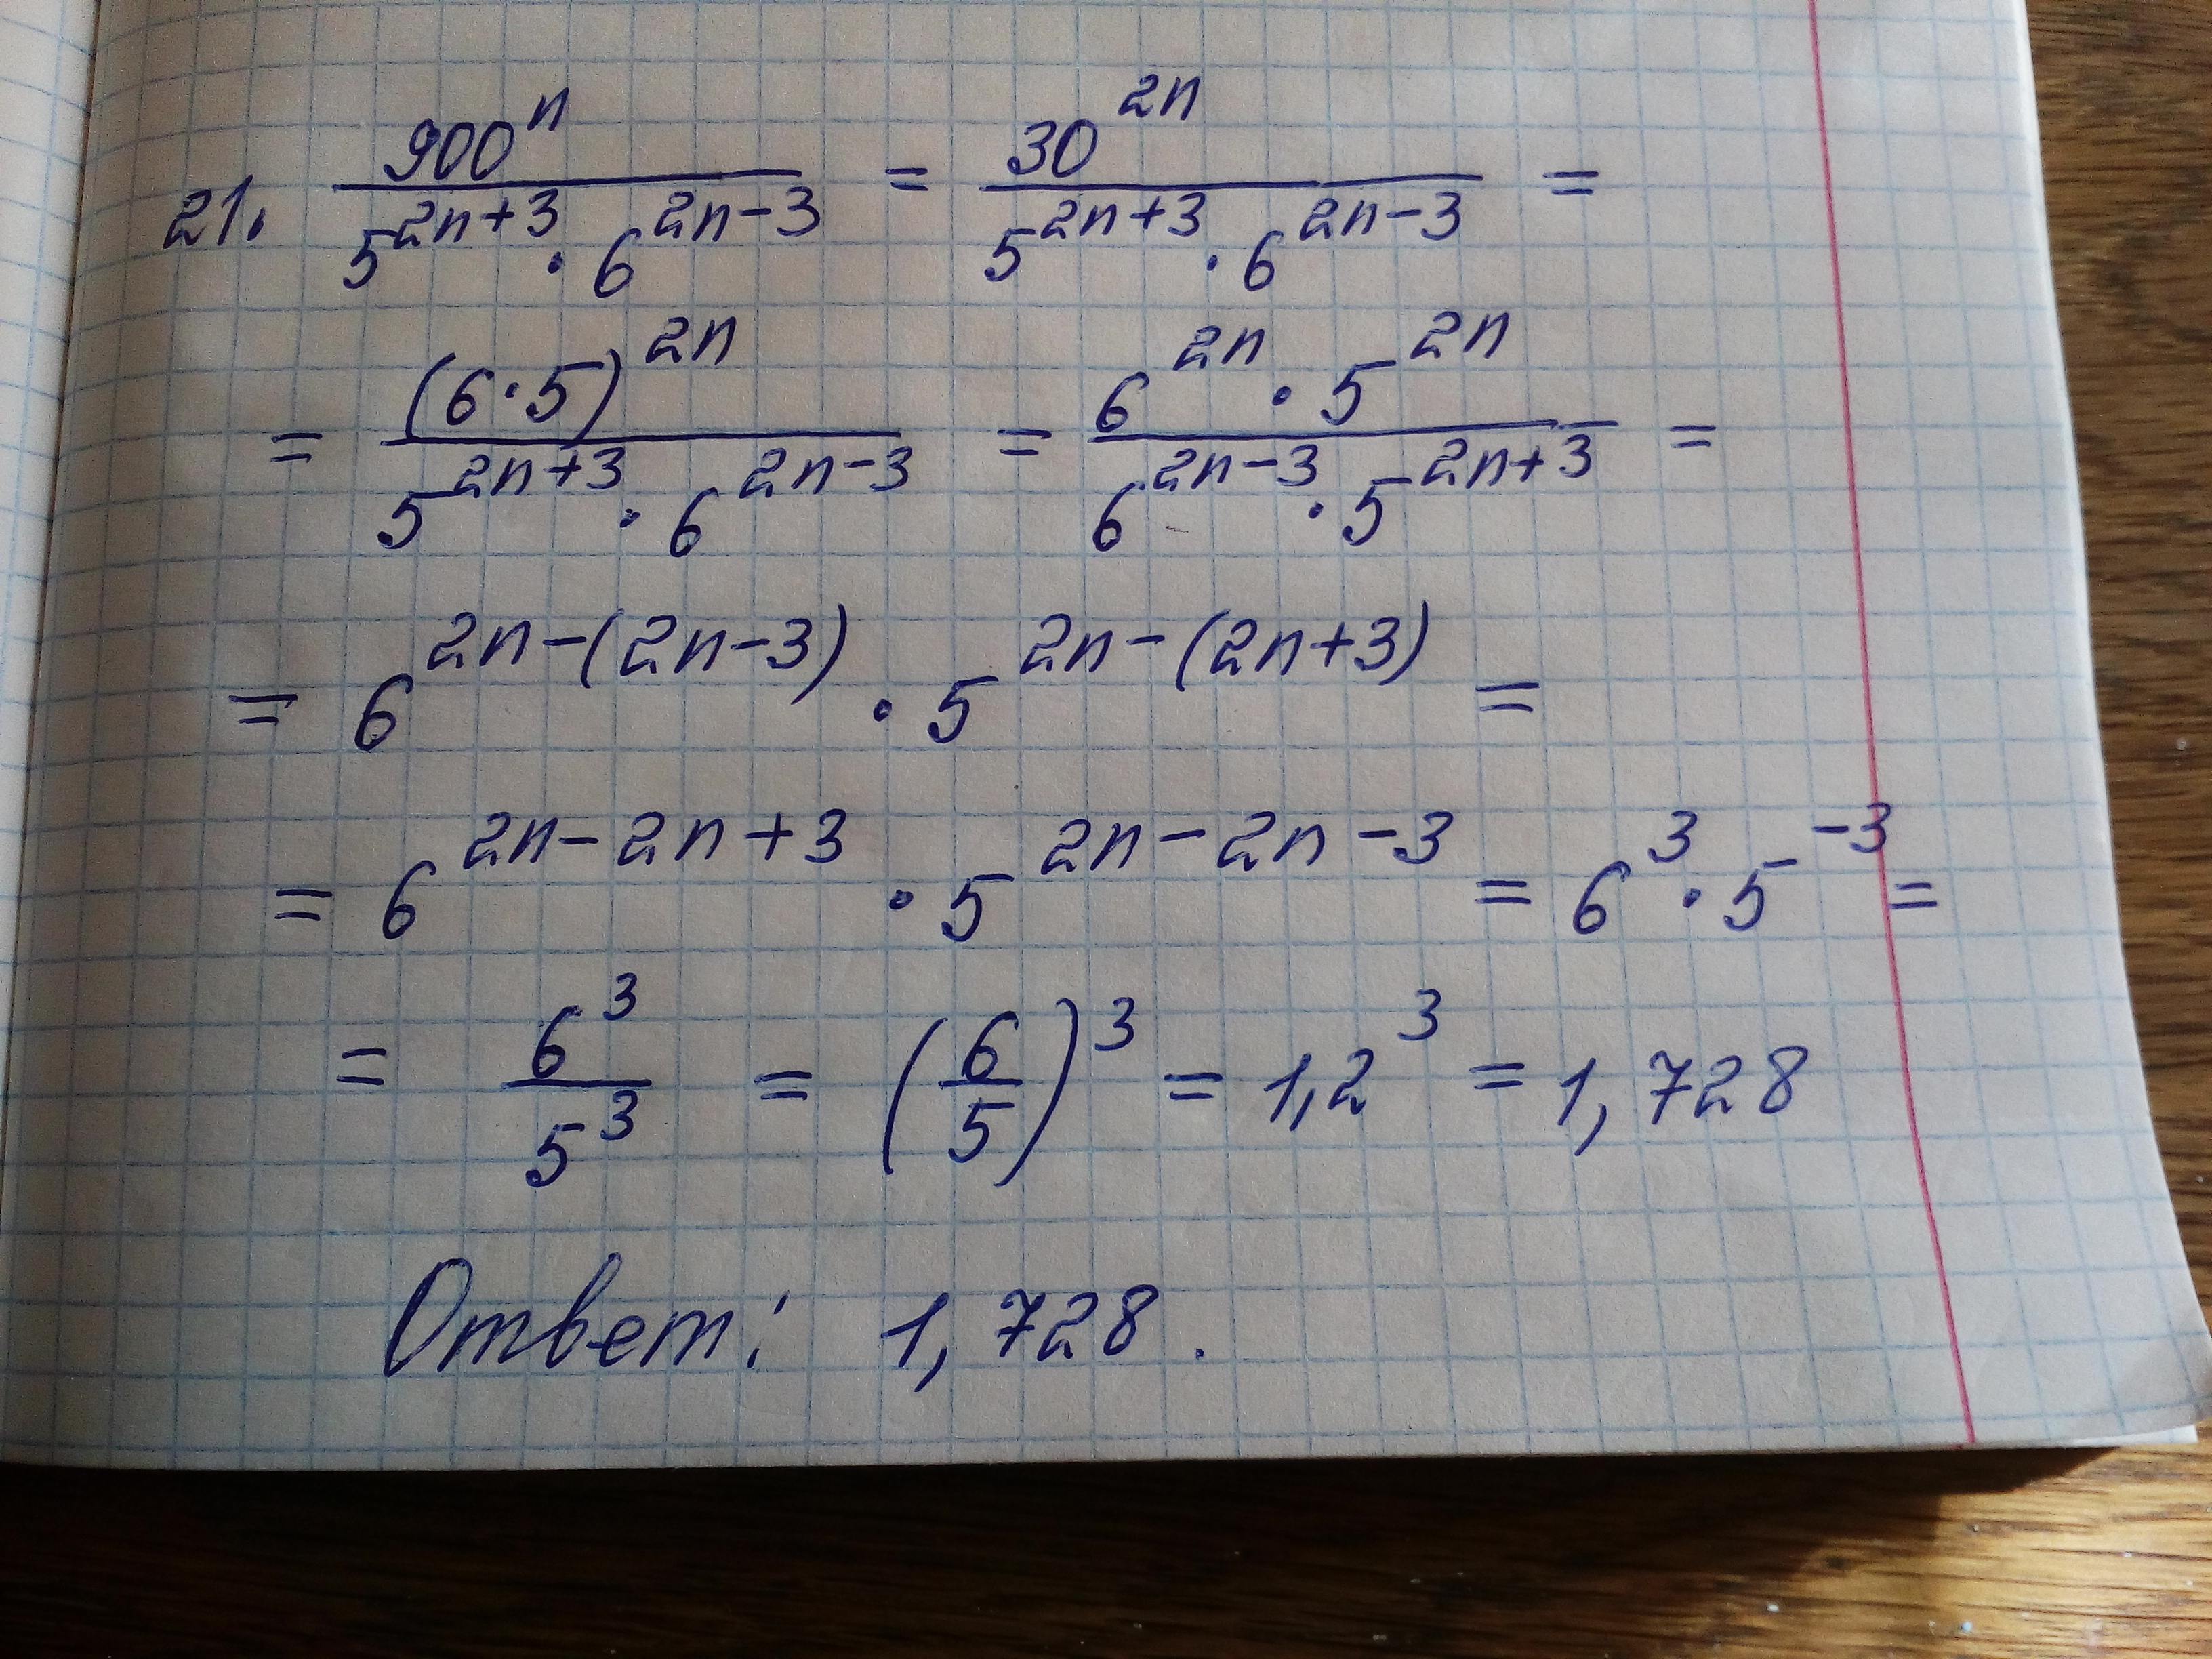 21. 900^n / (5^(2n+3) · 6^(2n-3)) = 30^(2n) / (5^(2n+3) · 6^(2n-3)) =
= (6·5)^(2n) / (5^(2n+3) · 6^(2n-3)) = (6^(2n) · 5^(2n)) / (6^(2n-3) · 5^(2n+3)) =
= 6^(2n-(2n-3)) · 5^(2n-(2n+3)) =
= 6^(2n-2n+3) · 5^(2n-2n-3) = 6^3 · 5^(-3) =
= 6^3 / 5^3 = (6/5)^3 = 1,2^3 = 1,728
Ответ: 1,728.